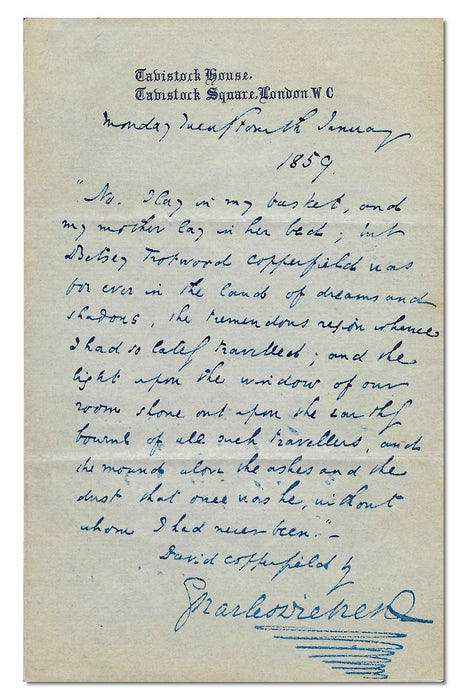 Tavistock House,
Tavistock Square, London. W C
Monday Twenty Fourth January
1859.
"No. I lay in my basket, and
my mother lay in her bed; but
Betsey Trotwood Copperfield was
for ever in the land of dreams and
shadows, the tremendous region whence
I had so lately travelled; and the
light upon the window of our
room shone out upon the earthly
bourne of all such travellers, and
the mound above the ashes and the
dust that once was he, without
whom I had never been." –
David Copperfield by
Charles Dickens